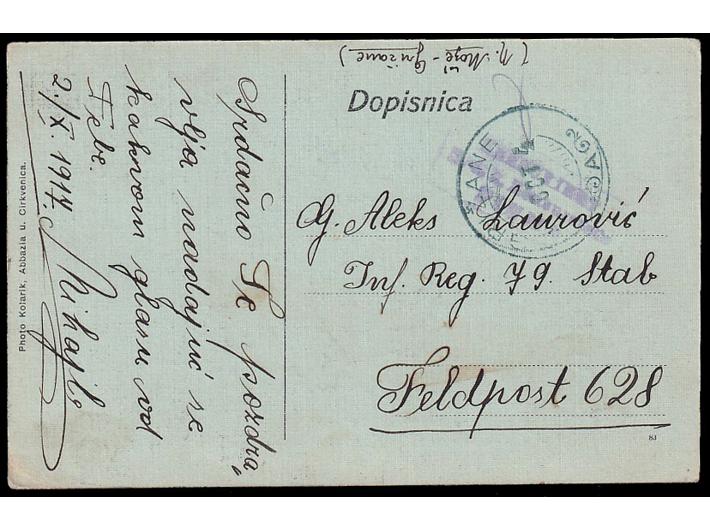 Srdačno Te pozdra„
vlja nadajuć se
kakvom glasu od
Tebe.
2./X. 1914. Mihajlo
Photo Kolarik, Abbazia u. Cirkvenica.
Dopisnica
G. Aleks Laurović
Inf. Reg. 79. Stab
Feldpost 628
83